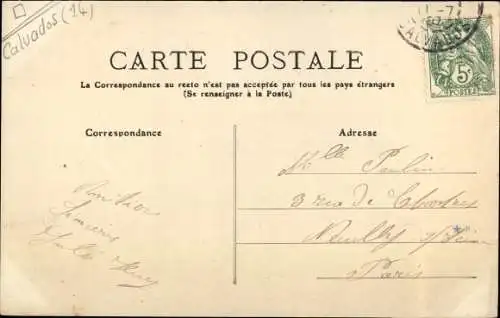 Calvados (14)
CARTE POSTALE
La Correspondance au recto n'est pas acceptée par tous les pays étrangers
(Se renseigner à la Poste)
Correspondance
Adresse
CALVADOS
5c
POSTES
Mlle Paulin
3 rue de Chartres
Neuilly s/Seine
Paris